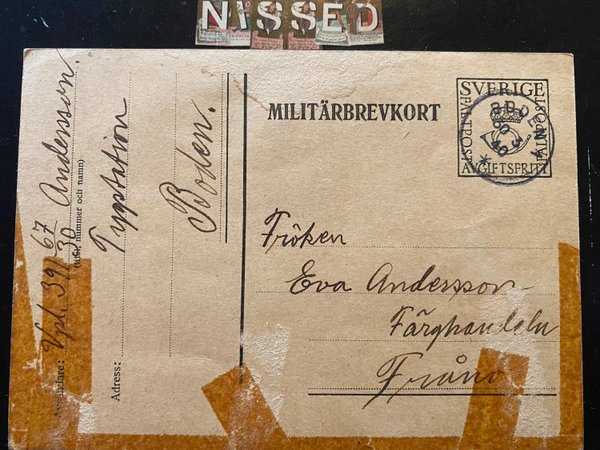 NISSED
MILITÄRBREVKORT
SVERIGE
FÄLTPOST
SVARSPOST
AVGIFTSFRITT
BODEN
Fröken
Eva Andersson
Färghandeln
Frånö
Avsändare: Vpl. 39 67/30 Andersson.
(titel, nummer och namn)
Adress:
Typstation
Boden.